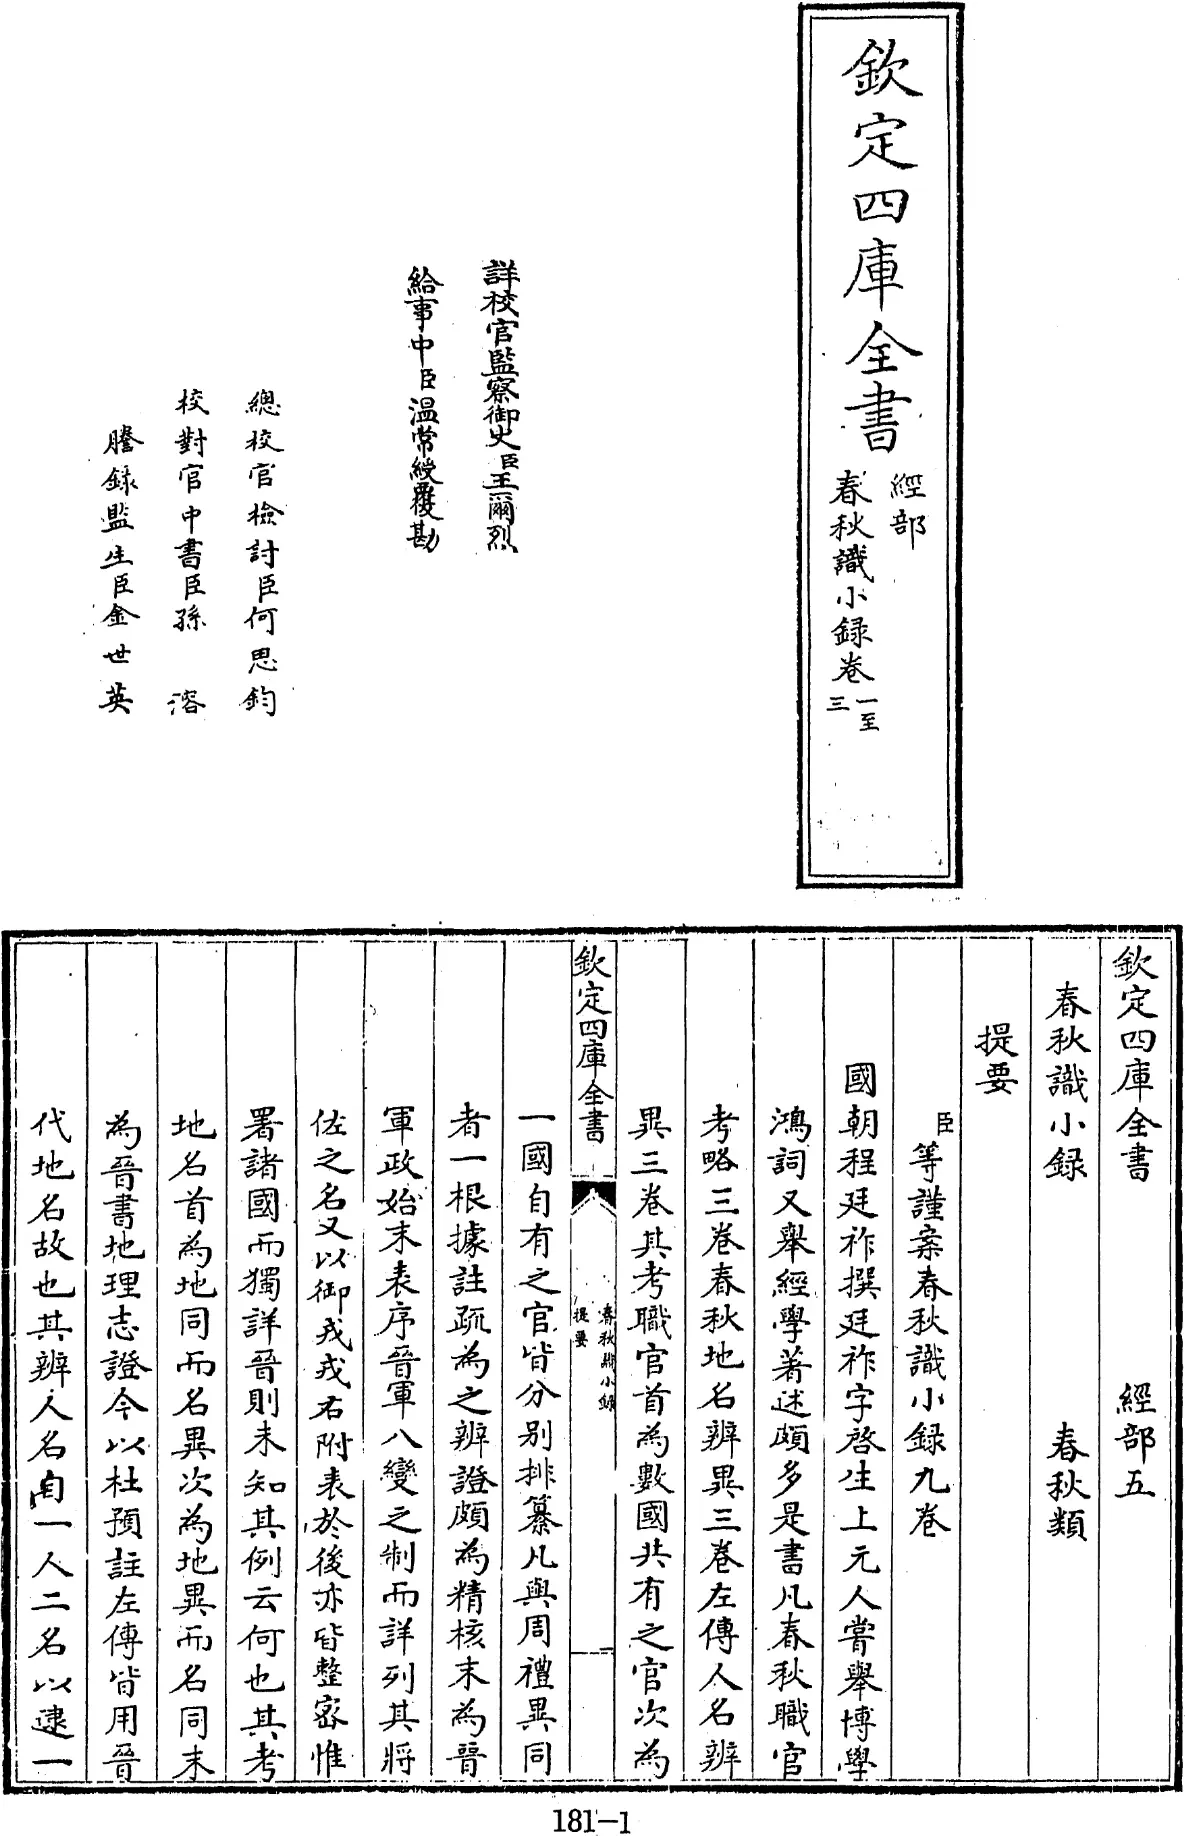 欽定四庫全書
經部
春秋識小録卷一至三
詳校官監察御史臣王爾烈
給事中臣温常綬覆勘
總校官檢討臣何思鈞
校對官中書臣孫溶
謄録監生臣金世英
欽定四庫全書 經部五
春秋識小録 春秋類
提要
臣等謹案春秋識小録九巻
國朝程廷祚撰廷祚字啓生上元人嘗舉博學
鴻詞又舉經學著述頗多是書凡春秋職官
考略三巻春秋地名辨異三巻左傳人名辨
異三巻其考職官首為數國共有之官次為
欽定四庫全書
春秋識小録
提要
一國自有之官皆分别排纂凡與周禮異同
者一根據註疏為之辨證頗為精核末為晉
軍政始末表序晉軍八變之制而詳列其將
佐之名又以御戎戎右附表於後亦皆整密惟
畧諸國而獨詳晉則未知其例云何也其考
地名首為地同而名異次為地異而名同末
為晉書地理志證今以杜預註左傳皆用晉
代地名故也其辨人名自一人二名以逮一
181-1